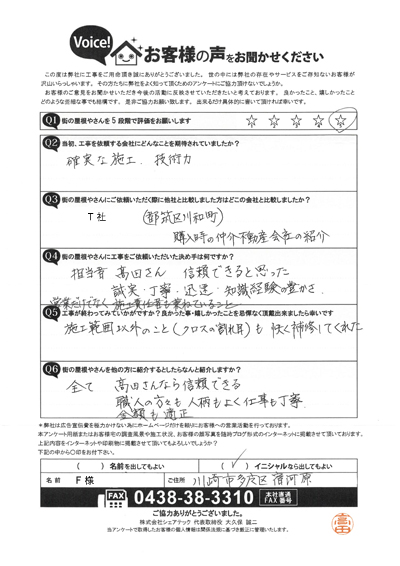 Voice!
お客様の声をお聞かせください
この度は弊社に工事をご用命頂き誠にありがとうございました。世の中には弊社の存在やサービスをご存知ないお客様が
沢山いらっしゃいます。その方たちに弊社をよく知って頂くためのアンケートにご協力頂けないでしょうか。
お客様のご意見をお聞かせいただき今後の活動に反映させていただきたいと考えております。良かったこと、嬉しかったこと
どのような些細な事でも結構です。是非ご協力お願い致します。出来るだけ具体的に書いて頂ければ幸いです。
Q1 街の屋根やさんを5段階で評価をお願いします ☆ ☆ ☆ ☆ ☆
Q2 当初、工事を依頼する会社にどんなことを期待されていましたか?
確実な施工、技術力
Q3 街の屋根やさんにご依頼いただく際に他社と比較しました方はどこの会社と比較しましたか?
T社 (都筑区川和町)
購入時の仲介不動産会社の紹介
Q4 街の屋根やさんに工事をご依頼いただいた決め手は何ですか?
担当者 高田さん 信頼できると思った
誠実・丁寧・迅速・知識経験の豊かさ、
営業だけでなく施工責任者も兼ねていること
Q5 工事が終わってみていかがですか?良かった事・嬉しかったことを忌憚なく頂戴出来ましたら幸いです
施工範囲以外のこと(クロスの割れ等)も快く補修してくれた
Q6 街の屋根やさんを他の方に紹介するとしたらなんと紹介しますか?
全て 高田さんなら信頼できる
職人の方々も人柄もよく仕事も丁寧
金額も適正
*弊社は広告宣伝費を極力かけない為にホームページだけを頼りにお客様への営業活動を行っております。
本アンケート用紙またはお客様宅の調査風景や施工状況、お客様の顔写真を随時ブログ形式のインターネットに掲載させて頂いております。
上記内容をインターネットや印刷物に掲載させて頂いてもよろしいでしょうか?
下記の中から○印をお付下さい。
( )名前を出してもよい (✓)イニシャルなら出してもよい
名前 F様 ご住所 川崎市多摩区菅河原
FAX 0438-38-3310 本社直通 FAX番号
ご協力ありがとうございました。
株式会社シェアテック 代表取締役 大久保 誠二
当アンケートで取得したお客様の個人情報は関係法規に基づき厳正に管理いたします。